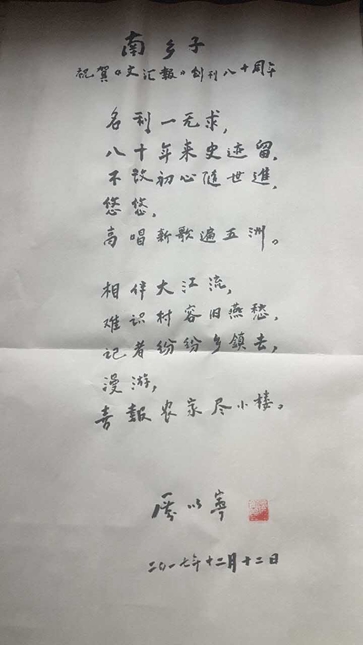 南乡子
祝賀《文汇報》創刊八十周年
名利一无求，
八十年来史迹留，
不改初心随世進，
悠悠，
高唱新歌遍五洲。
相伴大江流，
难识村容旧燕愁，
记者纷纷乡鎮去，
漫游，
喜報农家尽小楼。
厲以寧
二〇一七年十二月十二日